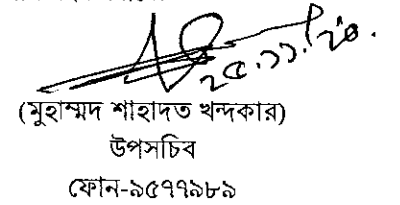 ২৫.১১.২০.
(মুহাম্মদ শাহাদত খন্দকার)
উপসচিব
ফোন-৯৫৭৭৯৮৯